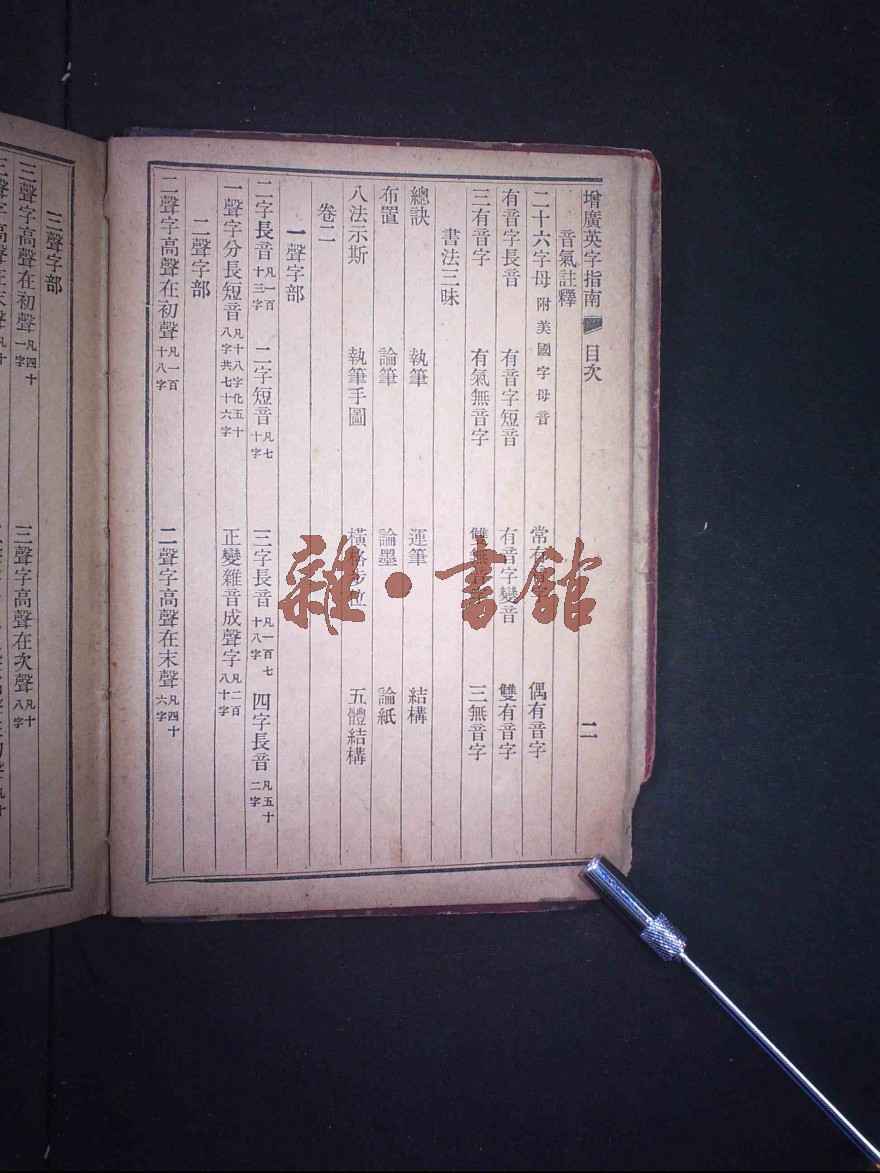 增廣英字指南 目次 二
音氣註釋
二十六字母 附美國字母音 常有音字 偶有音字
有音字長音 有音字短音 有音字變音 雙有音字
三有音字 有氣無音字 雙無音字 三無音字
書法三昧
總訣 執筆 運筆 結構
布置 論筆 論墨 論紙
八法示斯 執筆手圖 橫格 五體結構
卷二
一聲字部
二字長音 凡一百十三字 二字短音 凡七十字 三字長音 凡一百七十八字 四字長音 凡五十二字
一聲字分長短音 凡十八字化五十八字共七十六字 正變雜音成聲字 凡二百八十字
二聲字部
二聲字高聲在初聲 凡一百十八字 二聲字高聲在末聲 凡四十六字
三聲字部
三聲字高聲在初聲 凡四十一字 三聲字高聲在次聲 凡十八字
三聲字高聲在末聲
雜·書館